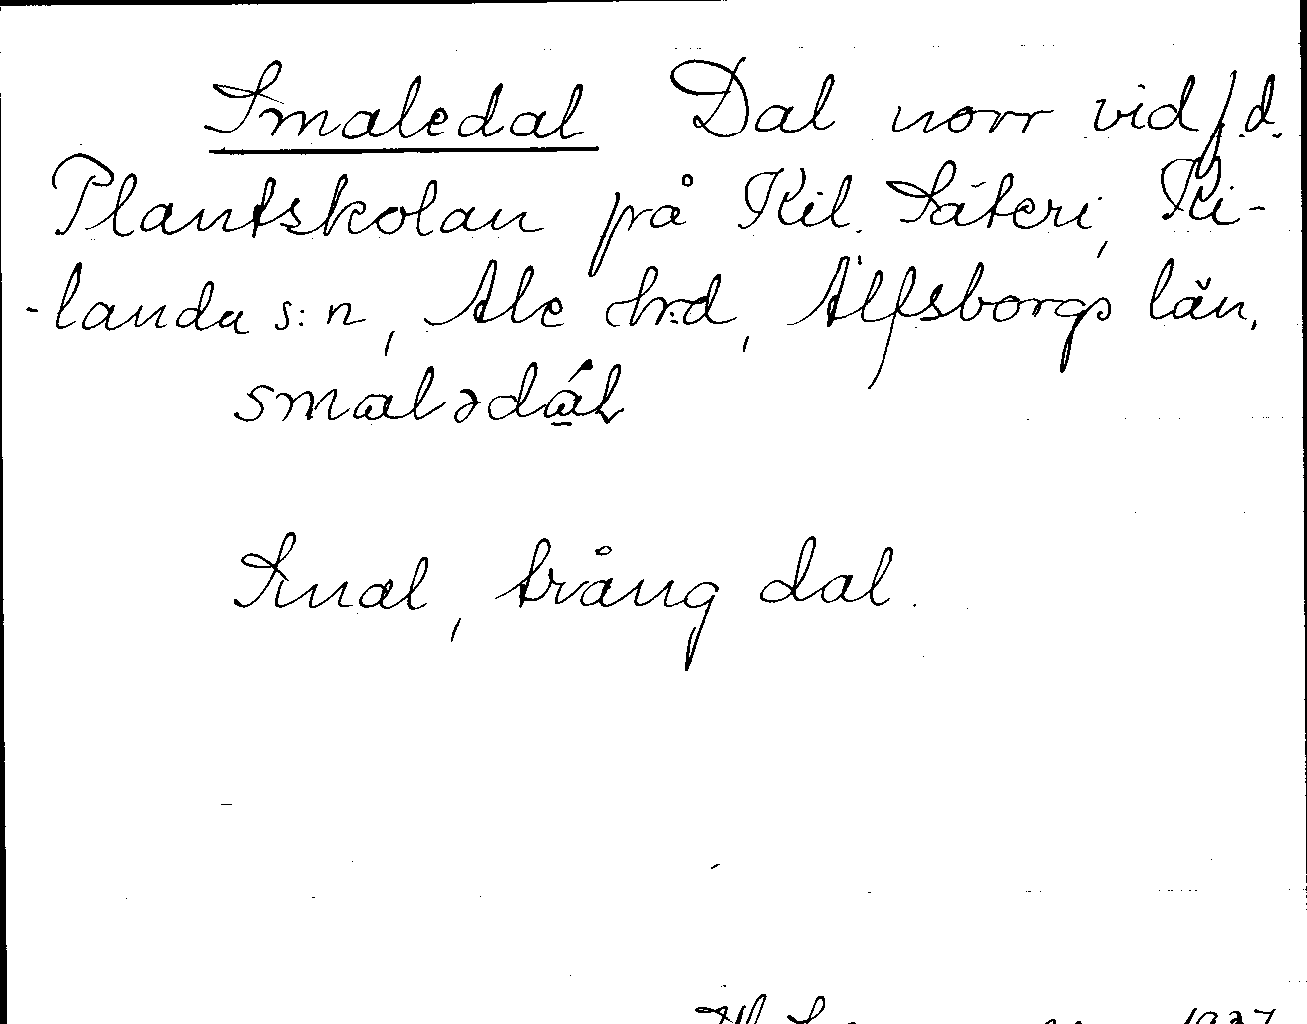 Smaledal Dal norr vid f.d.
Plantskolan på Kil Säteri, Ki-
-landa s:n, Ale hrd, Älfsborgs län.
smalədá̱L
Smal, trång dal.
1937